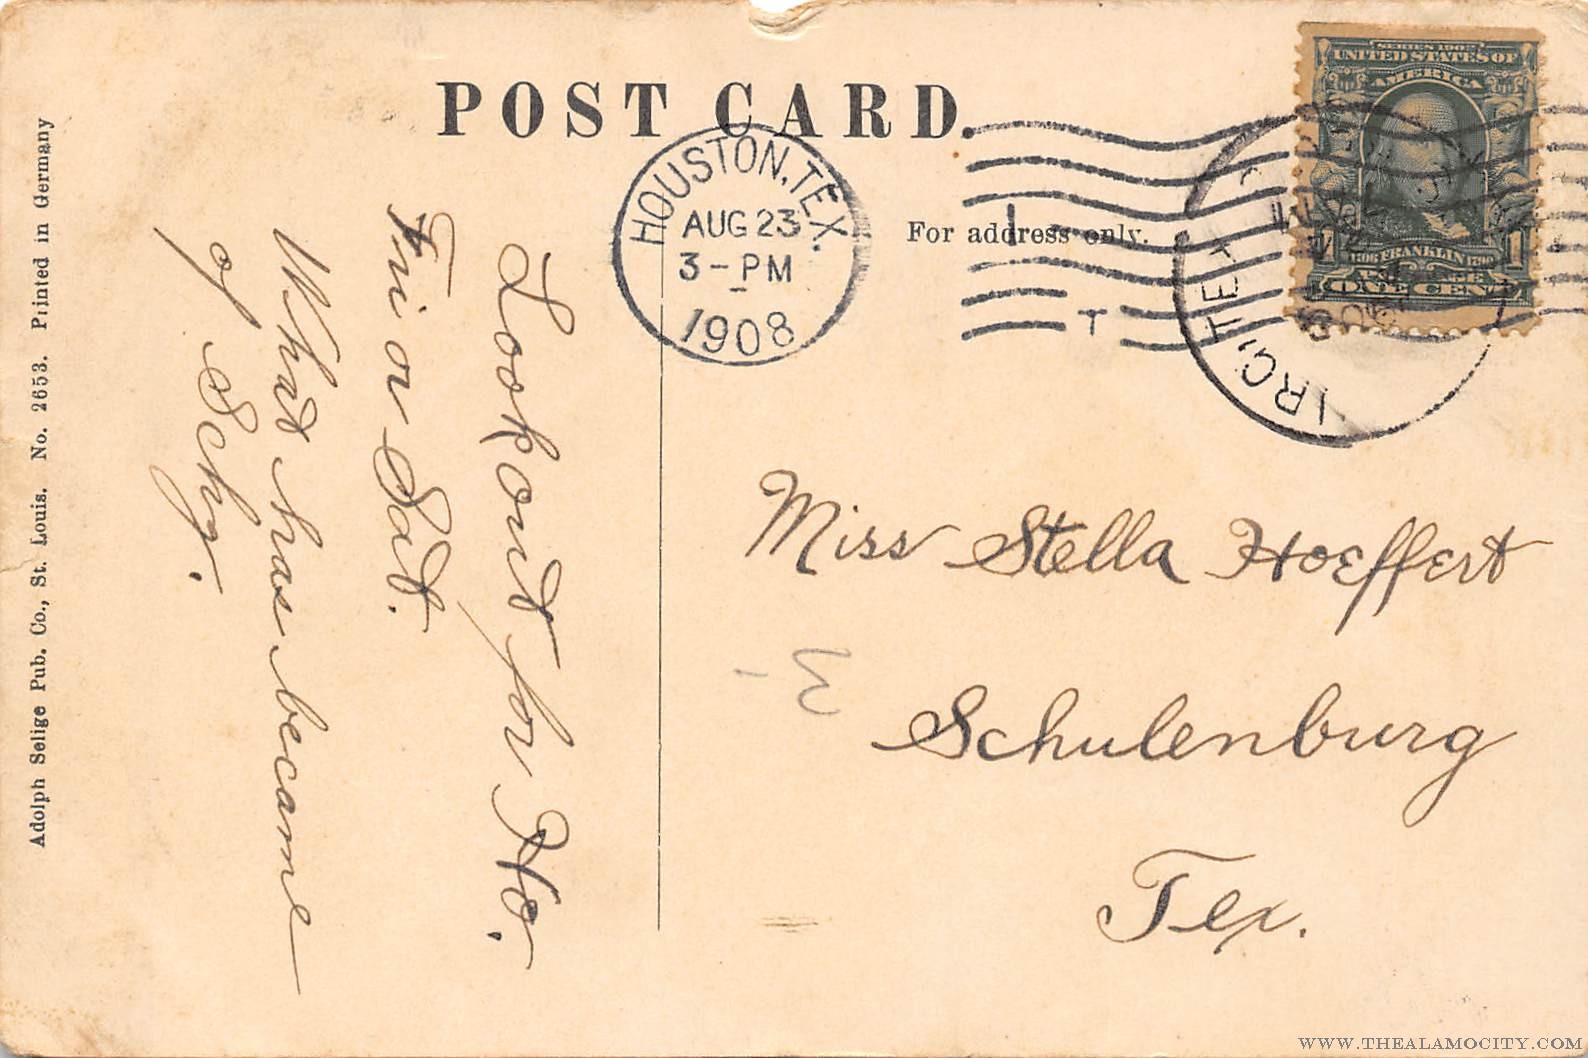 POST CARD.
HOUSTON, TEX.
AUG 23
3-PM
1908
For address only.
T
SERIES 1902
UNITED STATES OF
AMERICA
FRANKLIN
ONE CENT
1
TEX
Look out for Ho.
Fri or Sat.
What has became
of Schg.
Miss Stella Hoeffert
Schulenburg
Tex.
Adolph Selige Pub. Co., St. Louis. No. 2653. Printed in Germany
WWW.THEALAMOCITY.COM